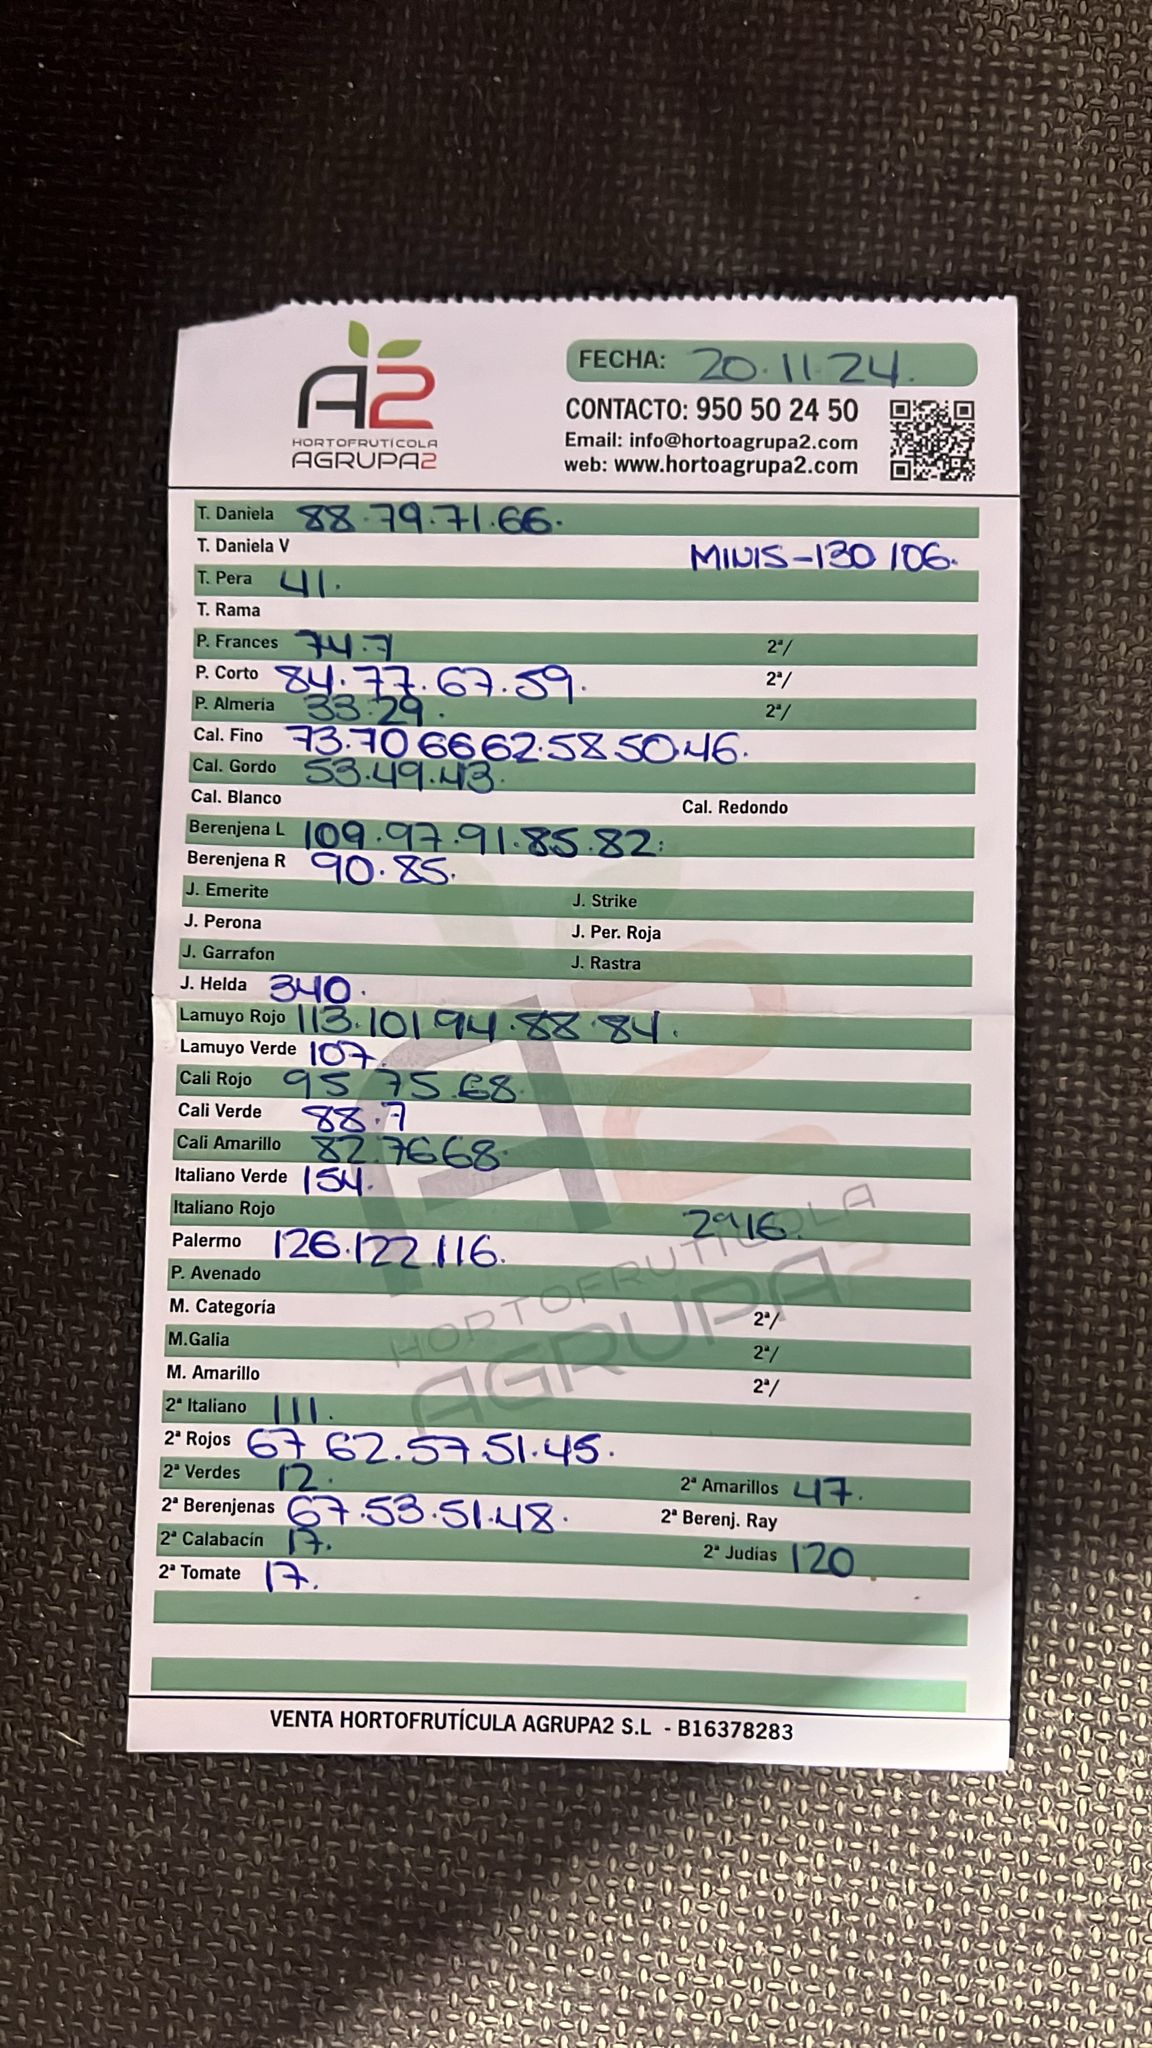 A2
HORTOFRUTÍCOLA
AGRUPA2
FECHA: 20.11.24.
CONTACTO: 950 50 24 50
Email: info@hortoagrupa2.com
web: www.hortoagrupa2.com
T. Daniela 88.79.71.66.
T. Daniela V MINIS-130 106.
T. Pera 41.
T. Rama
P. Frances 74.7 2ª/
P. Corto 84.77.67.59. 2ª/
P. Almería 33.29. 2ª/
Cal. Fino 73.70 66 62.58.50.46.
Cal. Gordo 53.49.43.
Cal. Blanco Cal. Redondo
Berenjena L 109.97.91.85.82.
Berenjena R 90.85.
J. Emerite J. Strike
J. Perona J. Per. Roja
J. Garrafon J. Rastra
J. Helda 340.
Lamuyo Rojo 113.101 94.88.84.
Lamuyo Verde 107.
Cali Rojo 95 75.68.
Cali Verde 88.7
Cali Amarillo 82.76 68.
Italiano Verde 154.
Italiano Rojo 2ª 16.
Palermo 126.122.116.
P. Avenado
M. Categoría 2ª/
M.Galia 2ª/
M. Amarillo 2ª/
2ª Italiano 111.
2ª Rojos 67 62.57.51.45.
2ª Verdes 12. 2ª Amarillos 47.
2ª Berenjenas 67.53.51.48. 2ª Berenj. Ray
2ª Calabacín 17. 2ª Judías 120
2ª Tomate 17.
HORTOFRUTÍCOLA
AGRUPA2
VENTA HORTOFRUTÍCULA AGRUPA2 S.L - B16378283